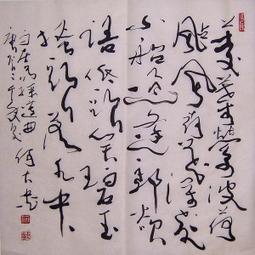 菱葉縈波荷
颭風荷花深處
小船通逢郎欲
語低頭笑碧玉
搔頭落水中
白居易採蓮曲
庚寅